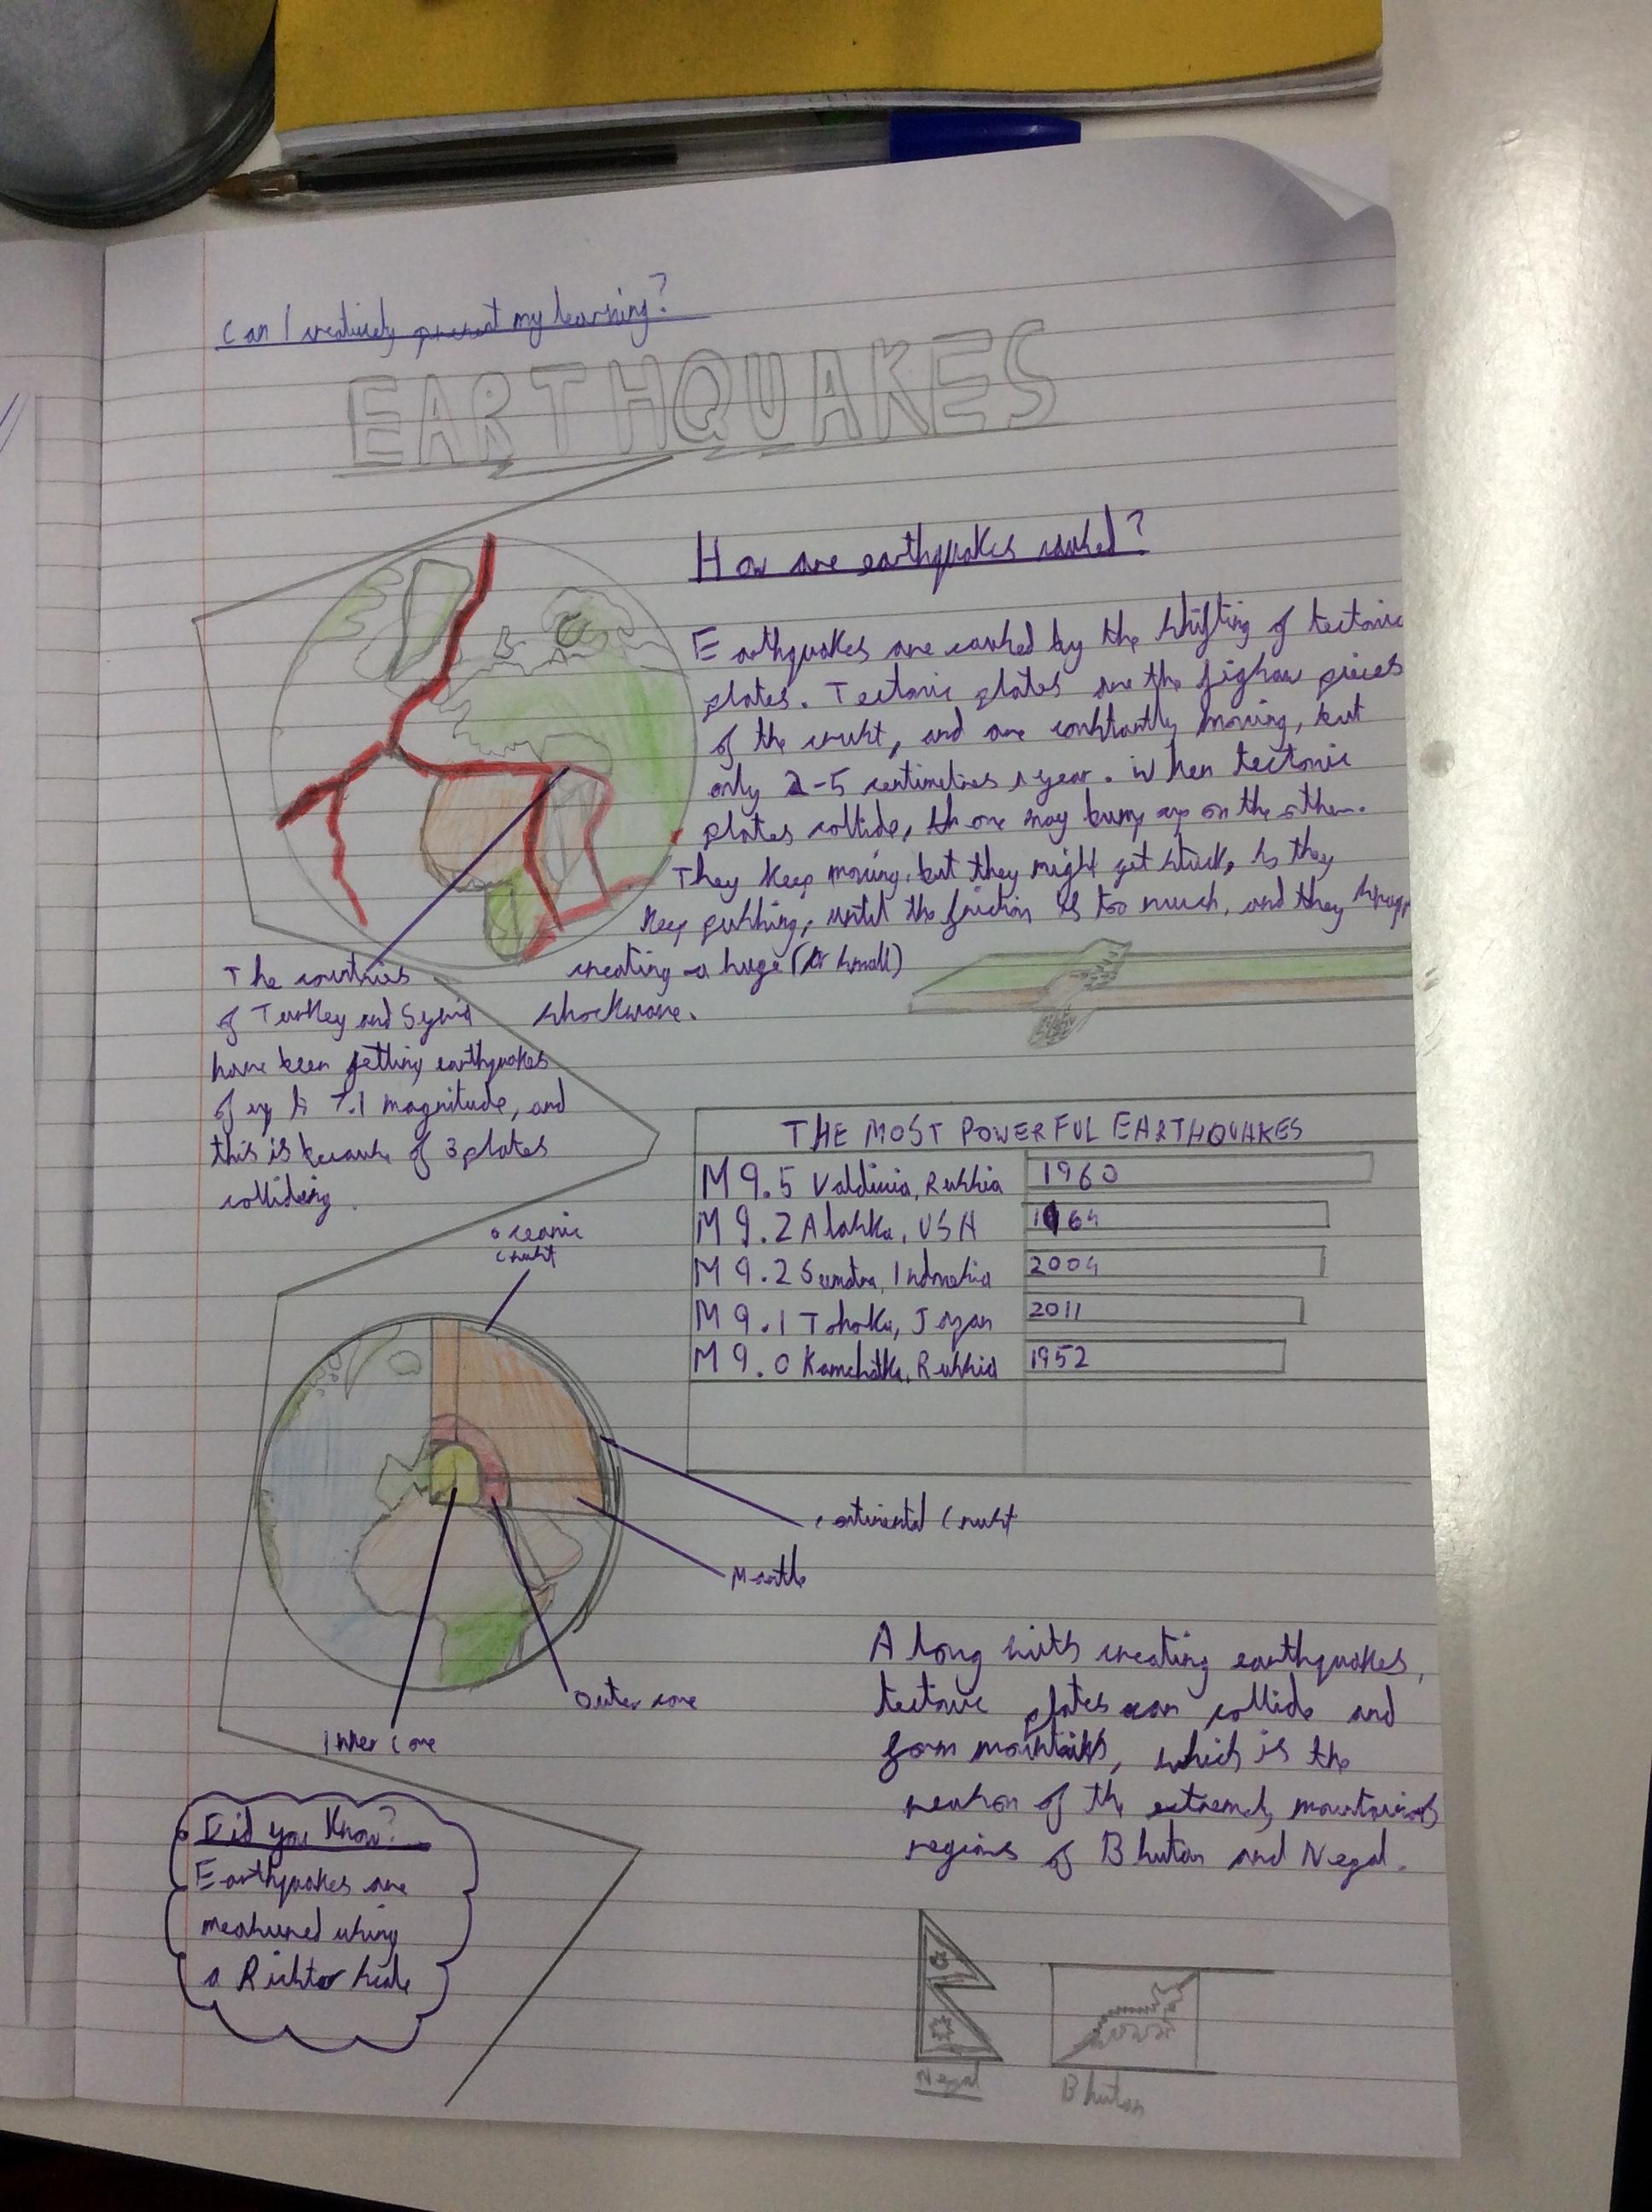 Can I creatively present my learning?
EARTHQUAKES
How are earthquakes caused?
Earthquakes are caused by the shifting of tectonic
plates. Tectonic plates are the jigsaw pieces
of the crust, and are constantly moving, but
only 2-5 centimetres a year. When tectonic
plates collide, one may bump up on the other.
They keep moving, but they might get stuck, so they
keep pushing, until the friction is too much, and they
creating a huge (or small)
shockwave.
The countries
of Turkey and Syria
have been getting earthquakes
of up to 7.1 magnitude, and
this is because of 3 plates
colliding.
THE MOST POWERFUL EARTHQUAKES
M 9.5 Valdivia, Russia 1960
M 9.2 Alaska, USA 1964
M 9.2 Sumatra, Indonesia 2004
M 9.1 Tohoku, Japan 2011
M 9.0 Kamchatka, Russia 1952
oceanic
crust
continental crust
Mantle
Outer core
Inner core
Along with creating earthquakes,
tectonic plates can collide and
form mountains, which is the
reason of the extremely mountainous
regions of Bhutan and Nepal.
Did you know?
Earthquakes are
measured using
a Richter scale
Nepal
Bhutan